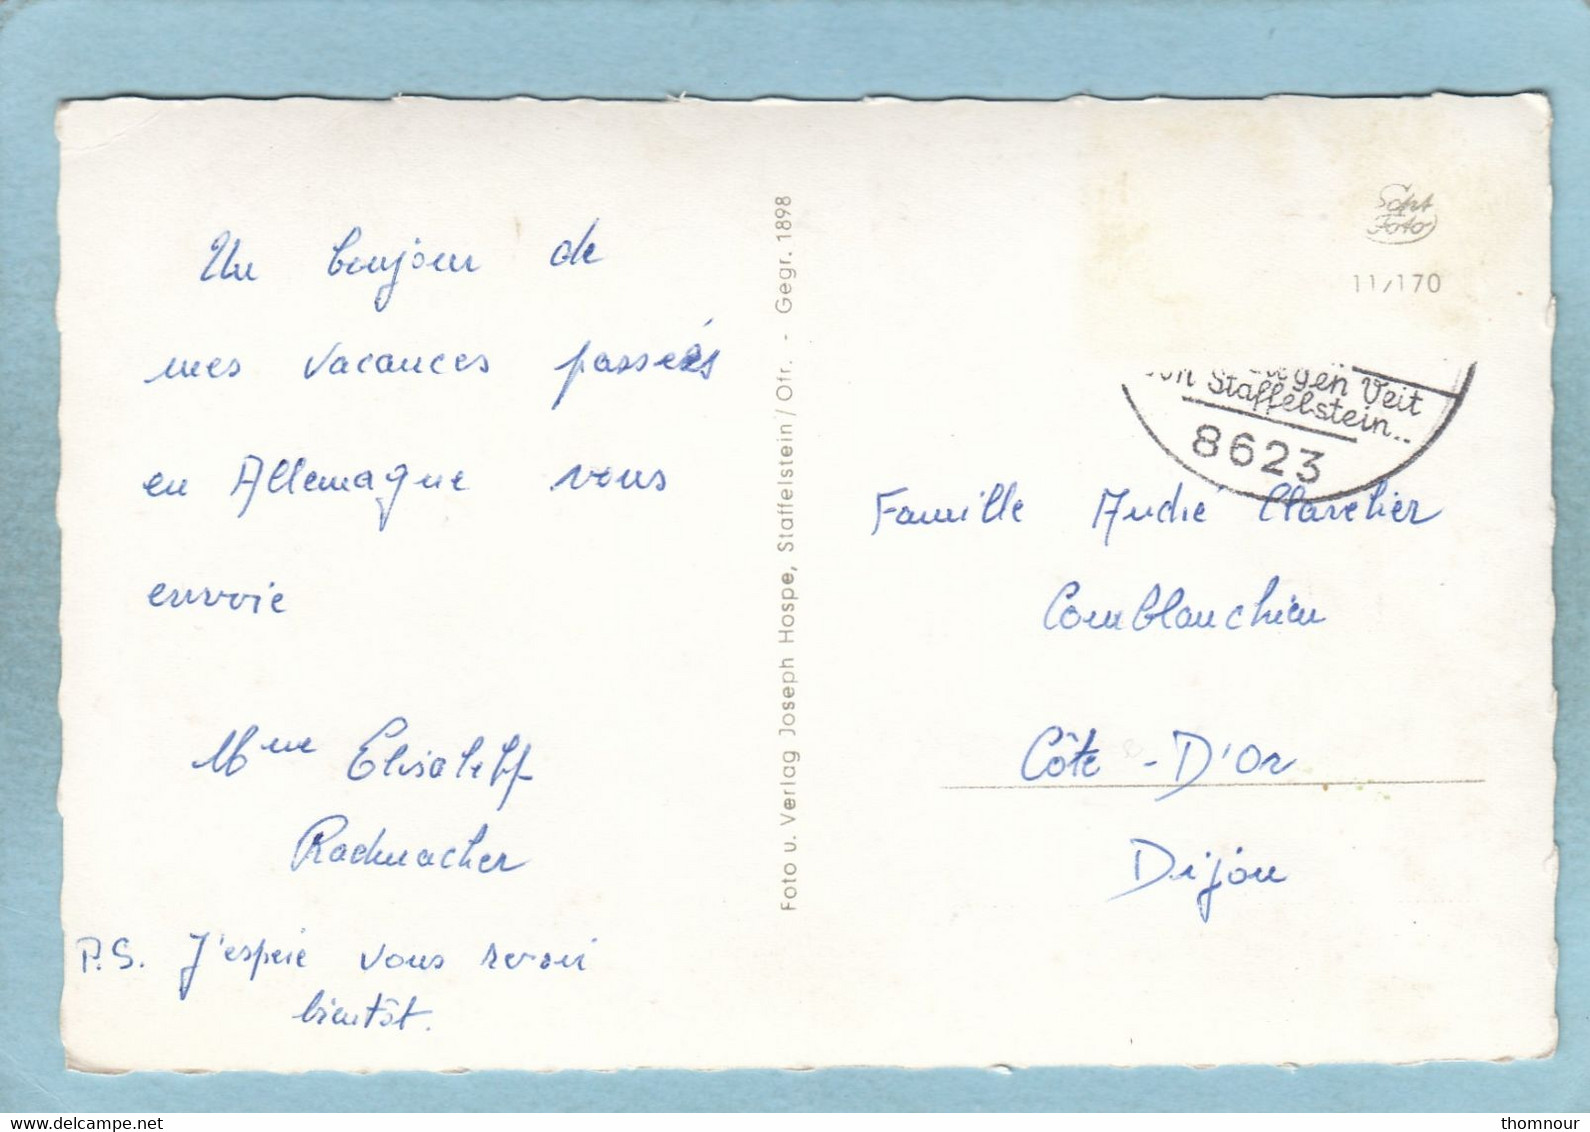 Un bonjour de
mes vacances passées
en Allemagne vous
envoie
Mme Elisabeth
Rademacher
P.S. J'espère vous revoir
bientôt.
Foto u. Verlag Joseph Hospe, Staffelstein/Ofr. - Gegr. 1898
Foto
11/170
Veit
Staffelstein..
8623
Famille André Clavelier
Comblanchien
Côte-D'Or
Dijon
thomnour